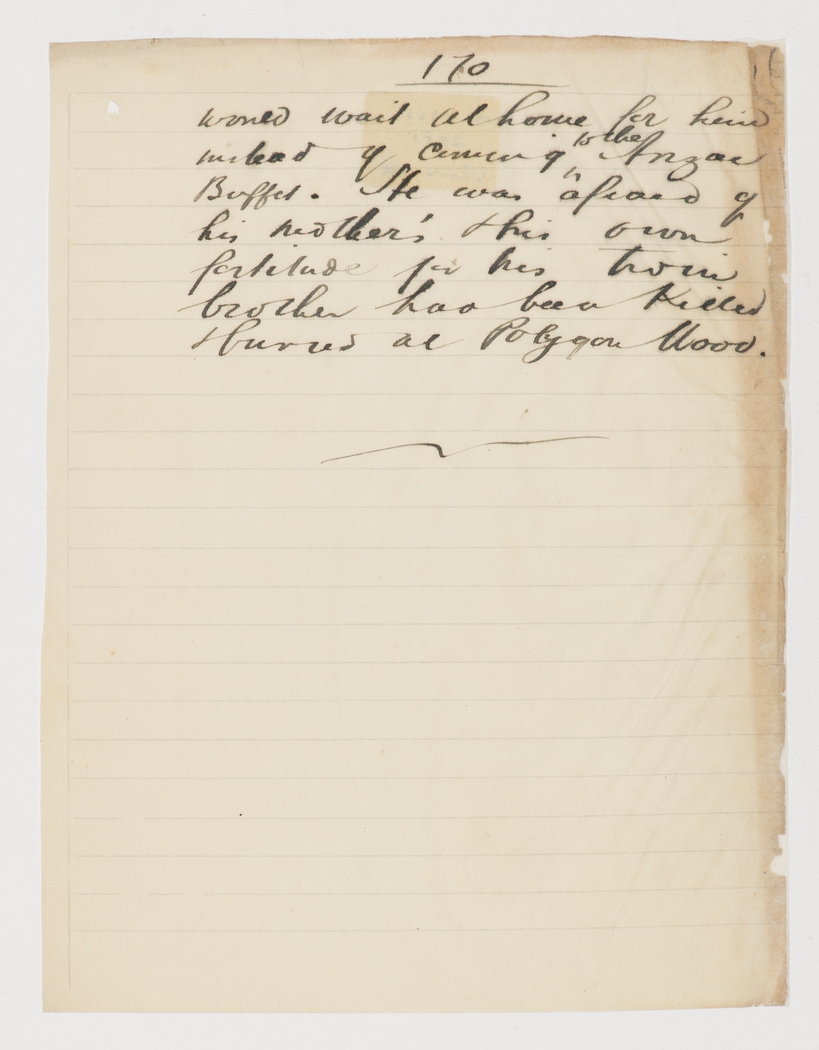 170
would wait at home for him
instead of coming to the Anzac
Buffet. He was afraid of
his mother's & his own
fortitude for his twin
brother has been killed
& buried at Polygon Wood.